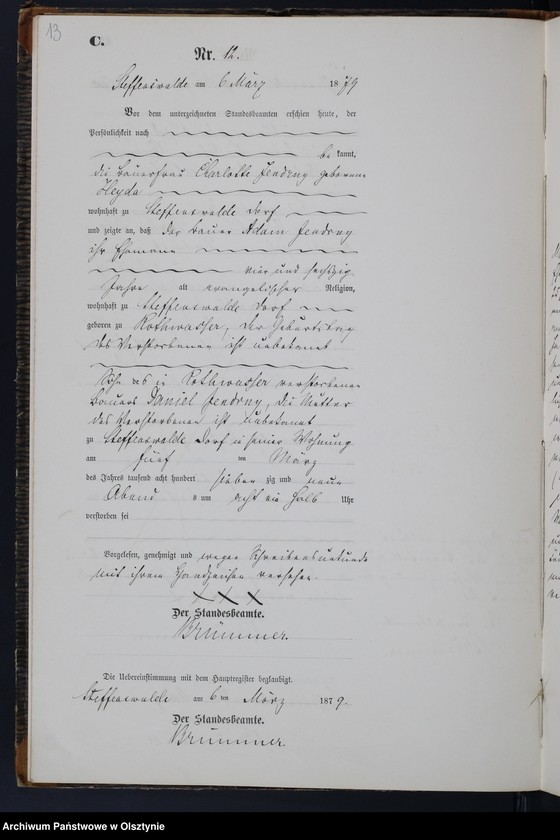 13
C.
Nr. 12.
Steffenswalde am 6 März 1879
Vor dem unterzeichneten Standesbeamten erschien heute, der
Persönlichkeit nach
bekannt,
die Bauerfrau Charlotte Jendrny geborene
Heyda
wohnhaft zu Steffenswalde Dorf
und zeigte an, daß der Bauer Adam Jendrny
ihr Ehemann
vier und sechszig
Jahre alt evangelischer Religion,
wohnhaft zu Steffenswalde Dorf
geboren zu Rothwasser, der Geburtstag
des Verstorbenen ist unbekannt
Sohn des in Rothwasser verstorbenen
Bauers Daniel Jendrny, die Mutter
des Verstorbenen ist unbekannt
zu Steffenswalde Dorf in seiner Wohnung
am fünf ten März
des Jahres tausend acht hundert sieben zig und neun
Abend s um acht ein halb Uhr
verstorben sei
Vorgelesen, genehmigt und wegen Schreibensunkunde
mit ihrem Handzeichen versehen.
X X X
Der Standesbeamte.
Brümmer.
Die Uebereinstimmung mit dem Hauptregister beglaubigt.
Steffenswalde am 6 ten März 1879.
Der Standesbeamte.
Brümmer
Archiwum Państwowe w Olsztynie